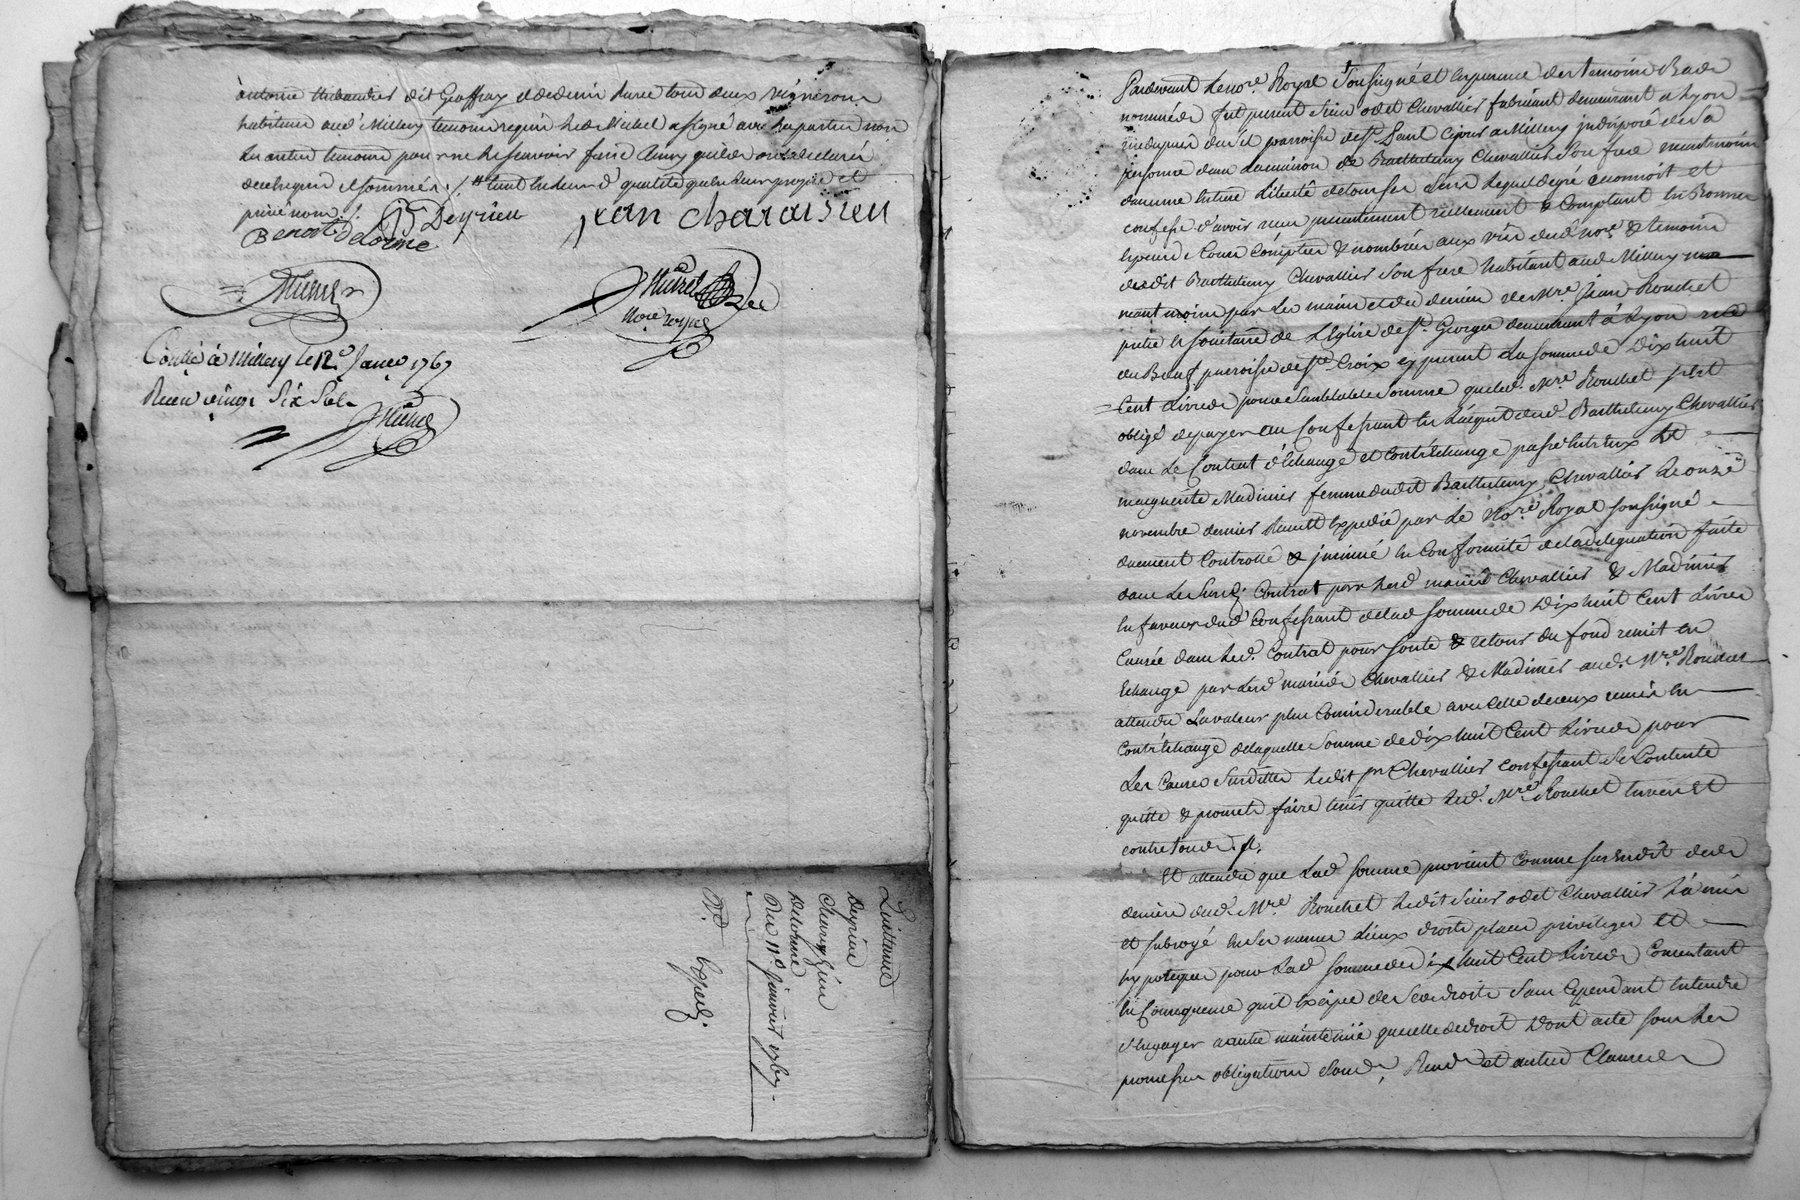 antoine thibaudier dit Geoffray et dedenis duree tous deux vignerons
habitans aud. Millery temoins requis led. Michel a signé avec les parties non
les autres temoins pour ne le scavoir faire ainsy quils ont declaré
de ce requis et sommés ./. tant en leurs d. qualités qu'en leurs propre et
privé nom ./.
B Deyrieu
jean charaisieu
Benoit delorme
nore royal
Conllé à Millery le 12e Janer 1767
Receu vingt six sols
Quittance
deyrieu
delorme
Du 11e Janvier 1767
Nd. Expedz.
Pardevant le nore Royal soussigné et en presence des temoins bas
nommés fut present sieur odet Chevallier fabricant demeurant a Lyon
personne dans la maison de Barthelemy Chevallier son frere neantmoins
dans une entiere Liberté de tous ses sens Lequel de gré reconnoit et
confesse d'avoir reçu presentement reellement & comptant en bonnes
especes de cours comptées & nombrées aux vües dud. nore & temoins
dudit Barthelemy Chevallier son frere habitant aud. Millery
neantmoins par les mains et des deniers de Mre Jean Rouchet
pretre et soûcitaire de L'Eglise de St. Georges demeurant à Lyon rue
du Bœuf parroisse de Ste Croix cy present La somme de dix huit
Cent Livres pour semblable somme que led. Mre Rouchet s'est
obligé de payer au Confessant en L'acquit dud. Barthelemy Chevallier
dans Le Contrat d'Echange et Contréchange passé entre eux et
marguerite Madinier femme dudit Barthelemy Chevallier Le onze
novembre dernier receu et Expedié par Le Nore Royal soussigné
duement Controllé & jnsinué en Conformité de la delegation faite
dans Le susd. Contrat par lesd. mariés Chevallier & Madinier
en faveur dud. Confessant de lad. somme de Dix huit Cent Livres
Causée dans led. Contrat pour soute & retour du fond remit en
Echange par lesd. mariés Chevallier & Madinier aud. Mre Rouchet
attendu La valeur plus Considerable avec celle de ceux remis en
Contréchange de laquelle somme de dix huit Cent Livres pour
Les Causes susdittes Ledit sr Chevallier confessant se Contente
quitte & promet faire tenir quitte led. Mre Rouchet envers et
contre tous ./.
Et attendu que lad. somme provient Comme susdit des
deniers dud. Mre Rouchet Ledit sieur odet Chevallier L'a mis
et subrogé en ses memes Lieux droits place privileges et
hypoteques pour lad. somme de dix huit Cent Livres Consentant
en Consequence qu'il Excipe de ses droits sans Cependant entendre
s'engager a autre maintenüe que celle de droit Dont acte sous les
promesses obligations soumis. Renon. et autres Clauses